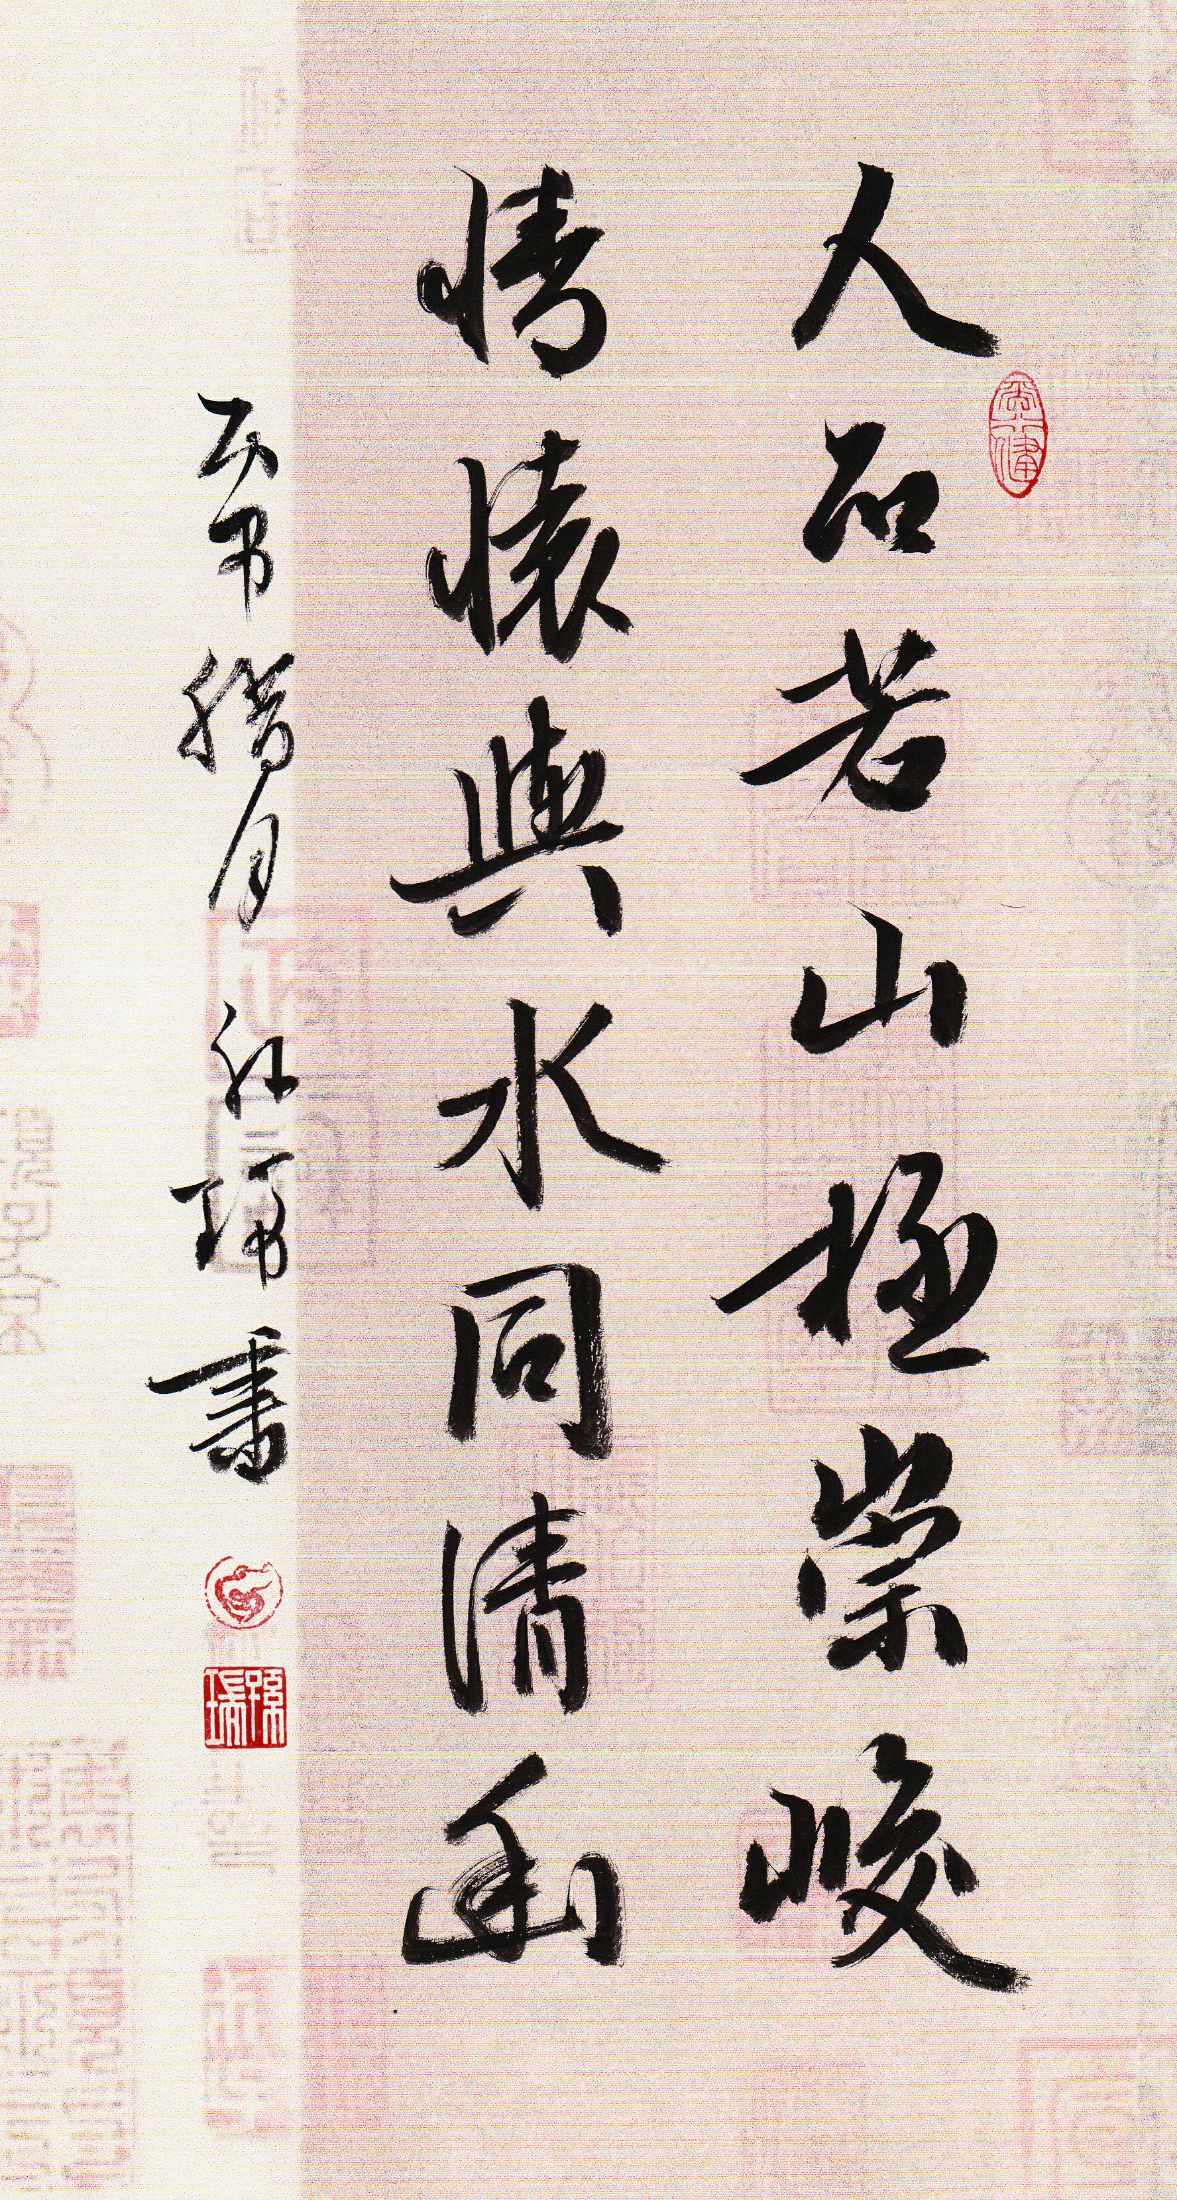 人品若山極崇峻
情懷與水同清幽
丙申臘月孫瑞書
孫瑞